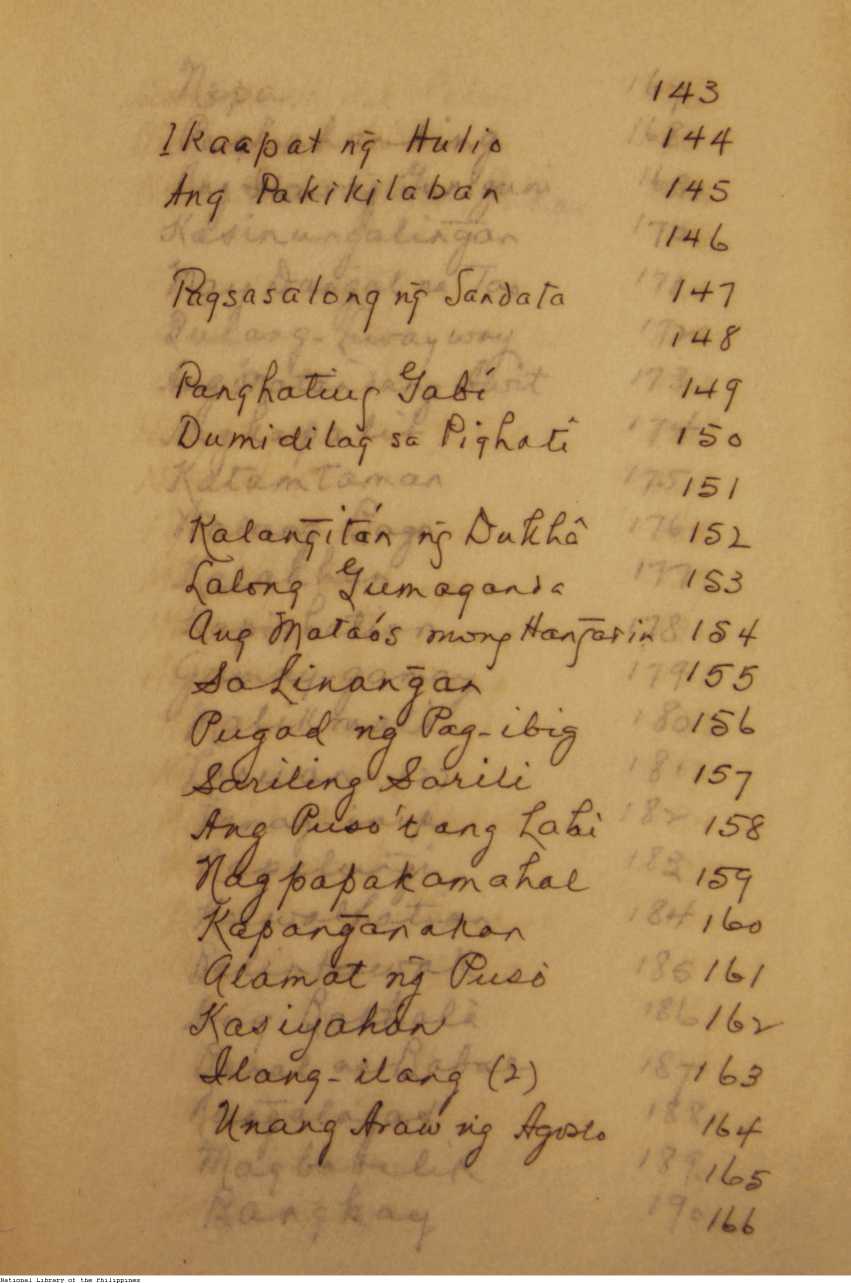 143
Ikaapat ng̃ Hulio 144
Ang Pakikilaban 145
146
Pagsasalong ng̃ Sandata 147
148
Panghating Gabí 149
Dumidilag sa Pighatî 150
151
Kalang̃itán ng̃ Dukhâ 152
Lalong Gumaganda 153
Ang Mataós mong Hang̃arin 154
Sa Linang̃an 155
Pugad ng̃ Pag-ibig 156
Sariling Sarili 157
Ang Puso't ang Labì 158
Nagpapakamahal 159
Kapang̃anakan 160
Alamat ng̃ Pusò 161
Kasiyahan 162
Ilang-ilang (2) 163
Unang Araw ng̃ Agosto 164
165
166
National Library of the Philippines